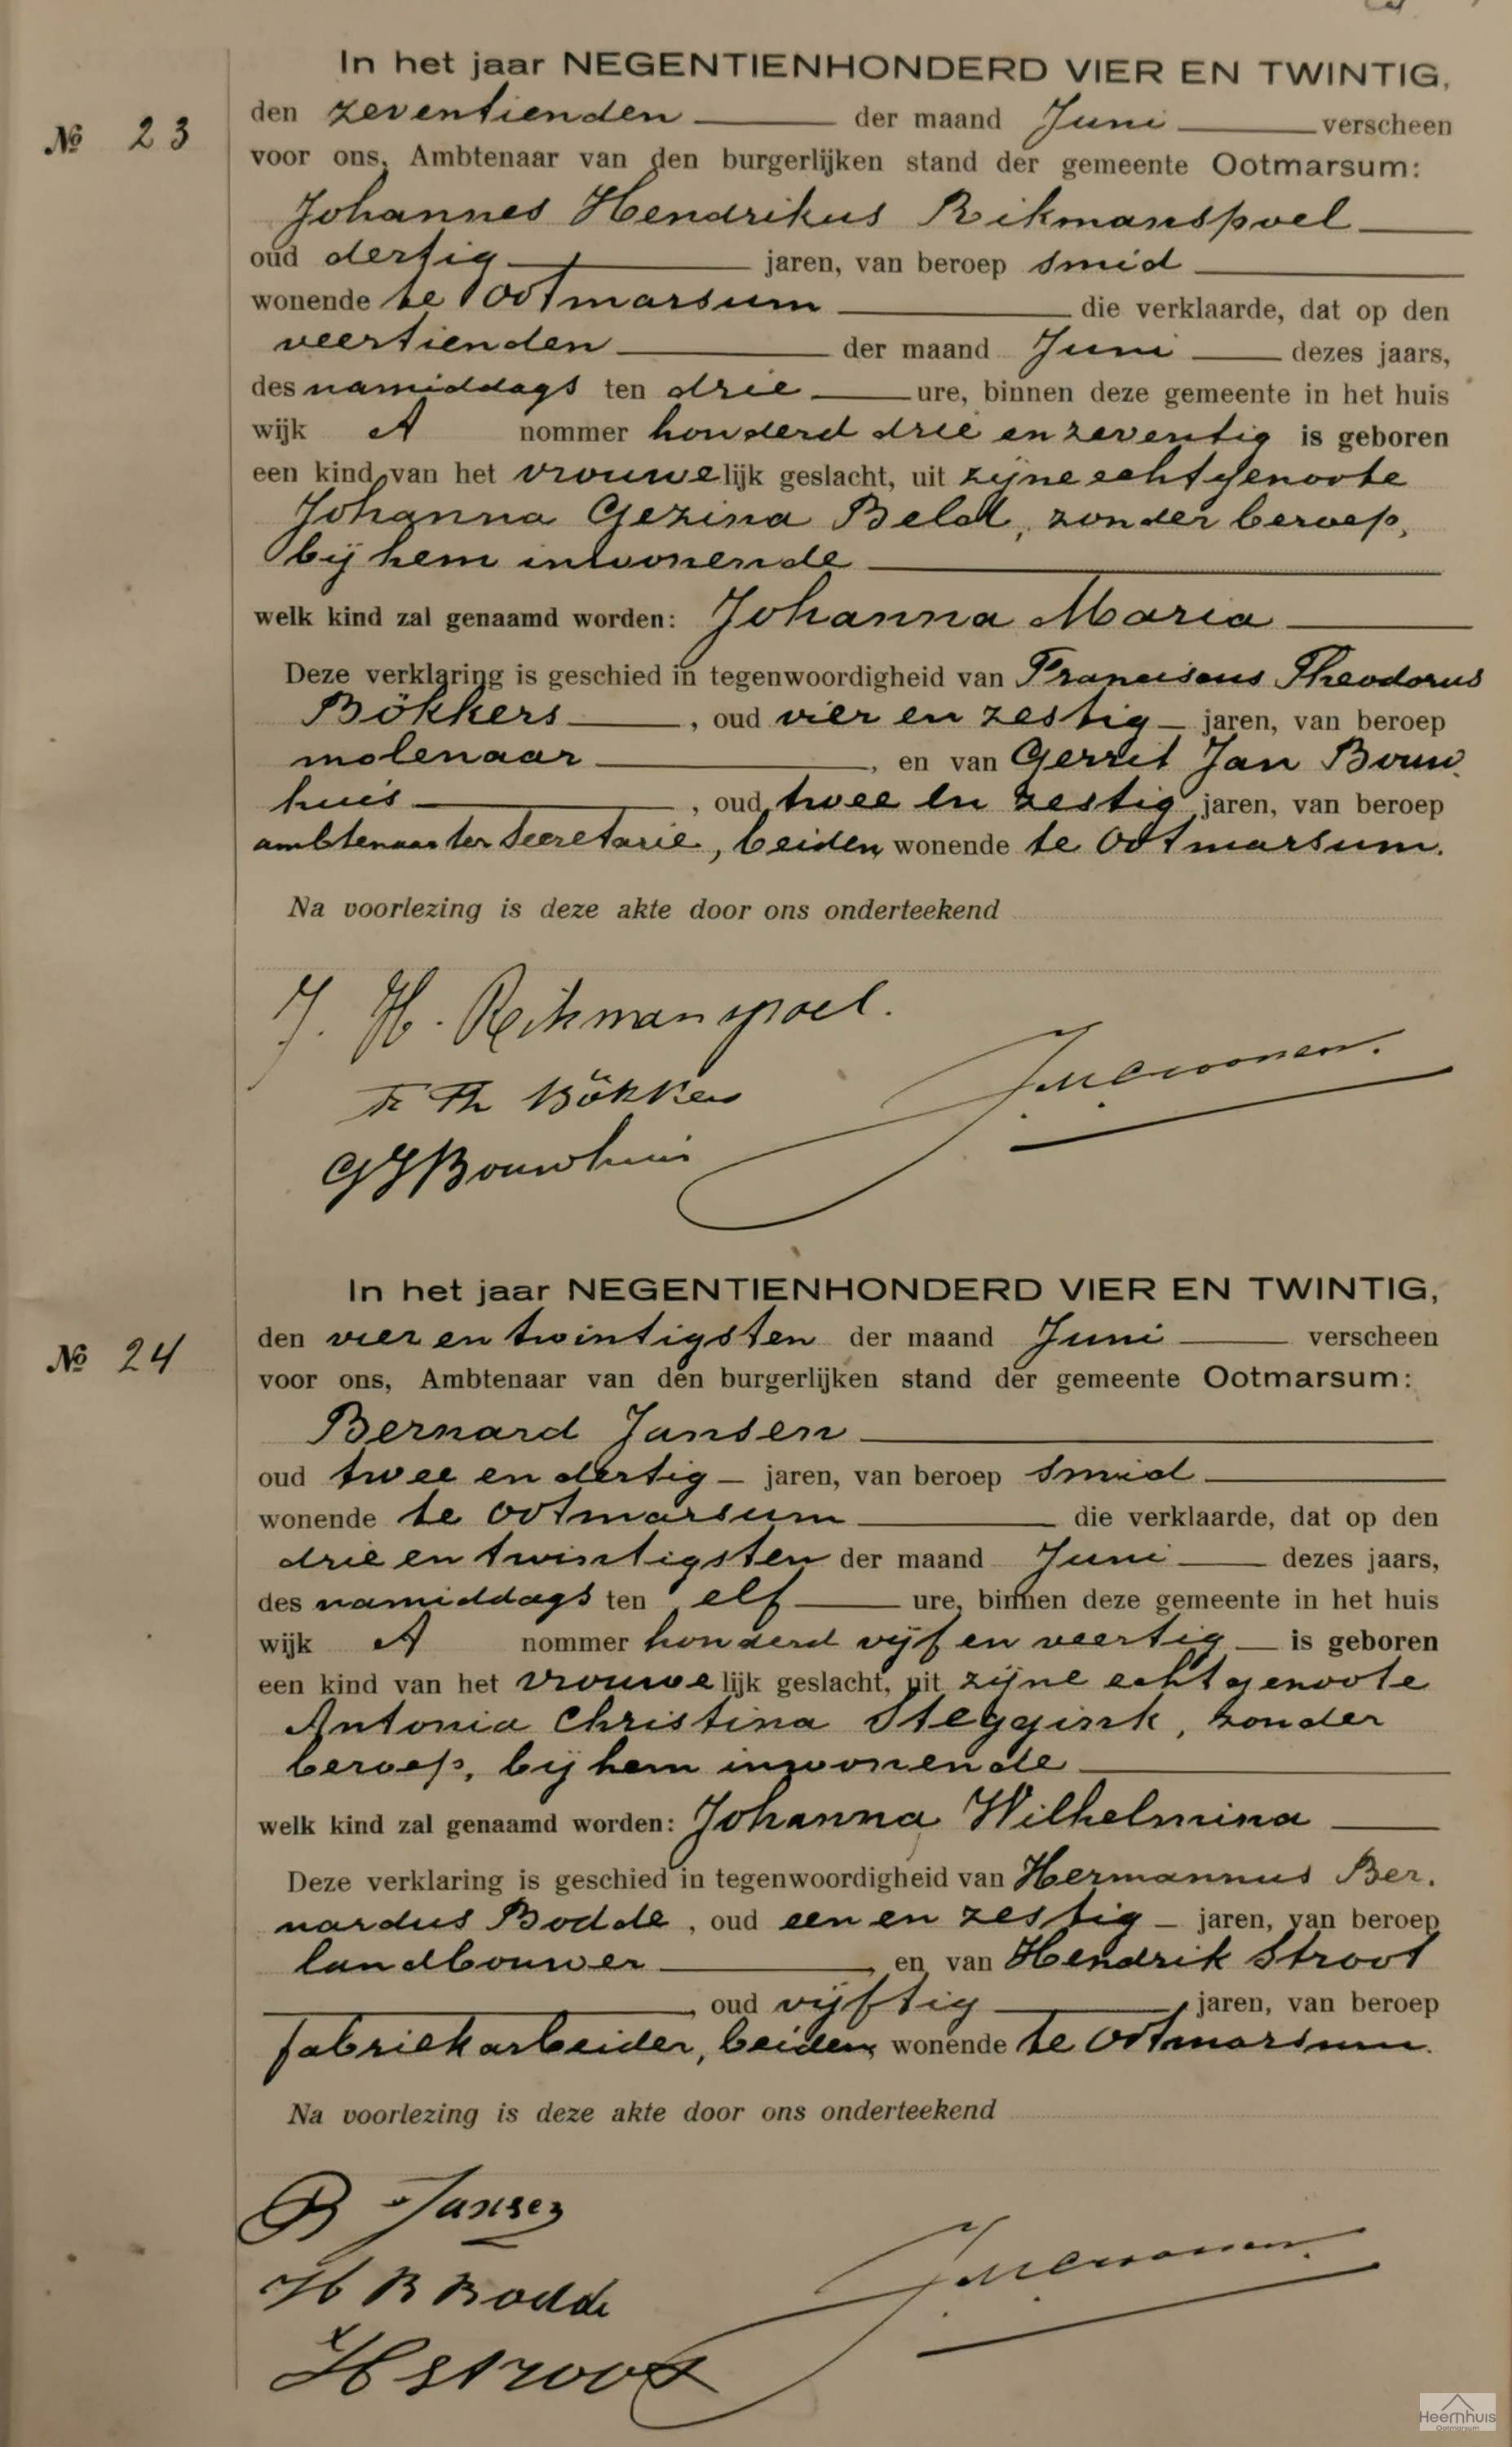 In het jaar NEGENTIENHONDERD VIER EN TWINTIG,
№ 23
den zeventienden der maand Juni verscheen
voor ons, Ambtenaar van den burgerlijken stand der gemeente Ootmarsum:
Johannes Hendrikus Rikmanspoel
oud dertig jaren, van beroep smid
wonende te Ootmarsum die verklaarde, dat op den
veertienden der maand Juni dezes jaars,
des namiddags ten drie ure, binnen deze gemeente in het huis
wijk A nommer honderd drie en zeventig is geboren
een kind van het vrouwelijk geslacht, uit zijne echtgenoote
Johanna Gezina Belt, zonder beroep,
bij hem inwonende
welk kind zal genaamd worden: Johanna Maria
Deze verklaring is geschied in tegenwoordigheid van Franciscus Theodorus
Bökkers, oud vier en zestig jaren, van beroep
molenaar, en van Gerrit Jan Bouw
huis, oud twee en zestig jaren, van beroep
ambtenaar ter Secretarie, beiden wonende te Ootmarsum.
Na voorlezing is deze akte door ons onderteekend
J. H. Rikmanspoel.
F Th Bökkers
GJ Bouwhuis
In het jaar NEGENTIENHONDERD VIER EN TWINTIG,
№ 24
den vier en twintigsten der maand Juni verscheen
voor ons, Ambtenaar van den burgerlijken stand der gemeente Ootmarsum:
Bernard Jansen
oud twee en dertig jaren, van beroep smid
wonende te Ootmarsum die verklaarde, dat op den
drie en twintigsten der maand Juni dezes jaars,
des namiddags ten elf ure, binnen deze gemeente in het huis
wijk A nommer honderd vijf en veertig is geboren
een kind van het vrouwelijk geslacht, uit zijne echtgenoote
Antonia Christina Steggink, zonder
beroep, bij hem inwonende
welk kind zal genaamd worden: Johanna Wilhelmina
Deze verklaring is geschied in tegenwoordigheid van Hermannus Ber.
nardus Bodde, oud een en zestig jaren, van beroep
landbouwer, en van Hendrik Stroot
, oud vijftig jaren, van beroep
fabriekarbeider, beiden wonende te Ootmarsum.
Na voorlezing is deze akte door ons onderteekend
B Jansen
H B Bodde
H Stroot
Heemhuis
Ootmarsum